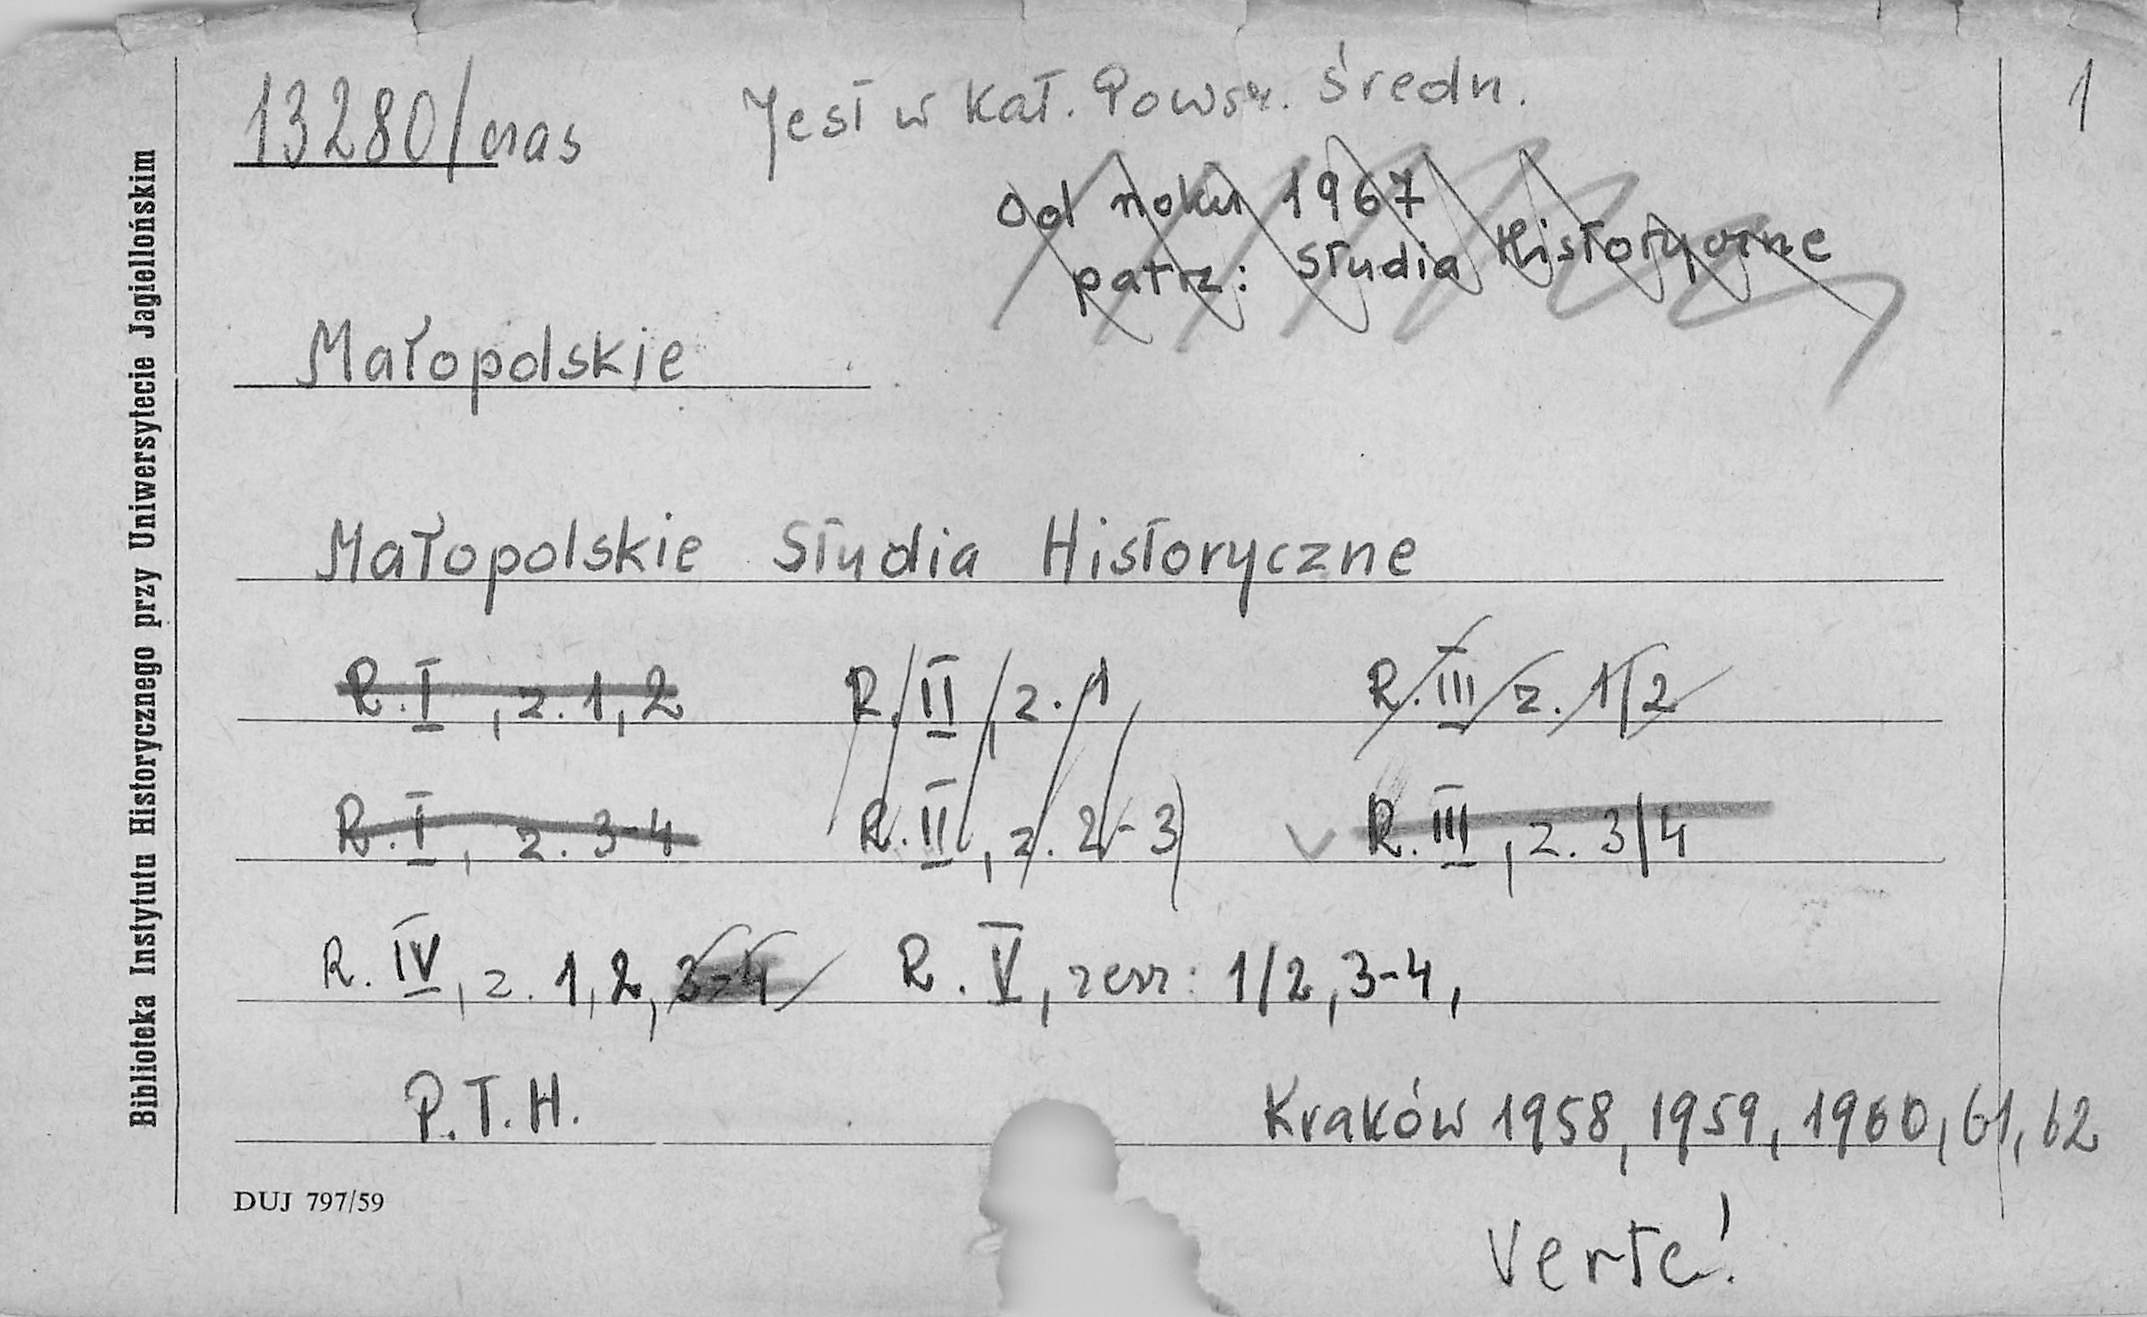 13280/czas
Jest w Kat. Powsz. Średn.
1
Od roku 1967
patrz: Studia Historyczne
Małopolskie
Małopolskie Studia Historyczne
R. I, z. 1, 2 R. II, z. 1 R. III z. 1/2
R. I, z. 3-4 R. II, z. 2-3 R. III, z. 3/4
R. IV, z. 1, 2, 3-4 R. V, zesz: 1/2, 3-4,
P.T.H. Kraków 1958, 1959, 1960, 61, 62
DUJ 797/59
Verte!
Biblioteka Instytutu Historycznego przy Uniwersytecie Jagiellońskim